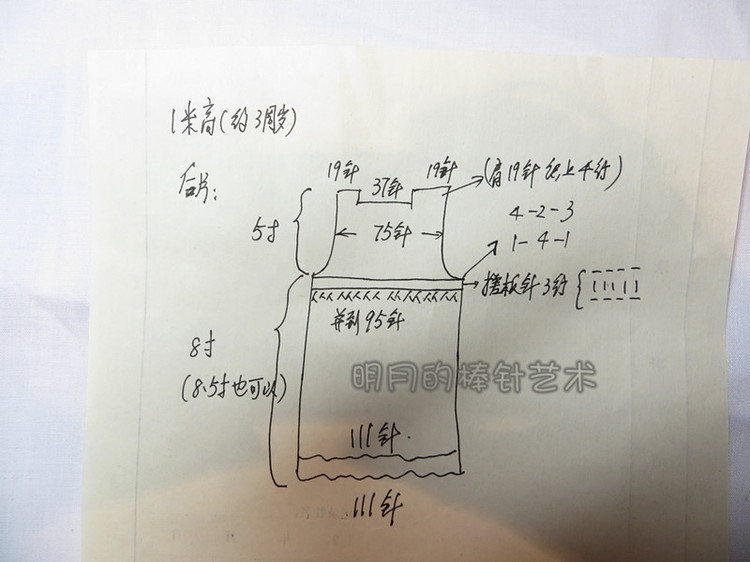 1米高(约3周岁)
后片:
19针
19针
37针
(肩19针织上4行)
4-2-3
1-4-1
5寸
75针
搓板针3行
并到95针
8寸
(8.5寸也可以)
明月的棒针艺术
111针.
111针